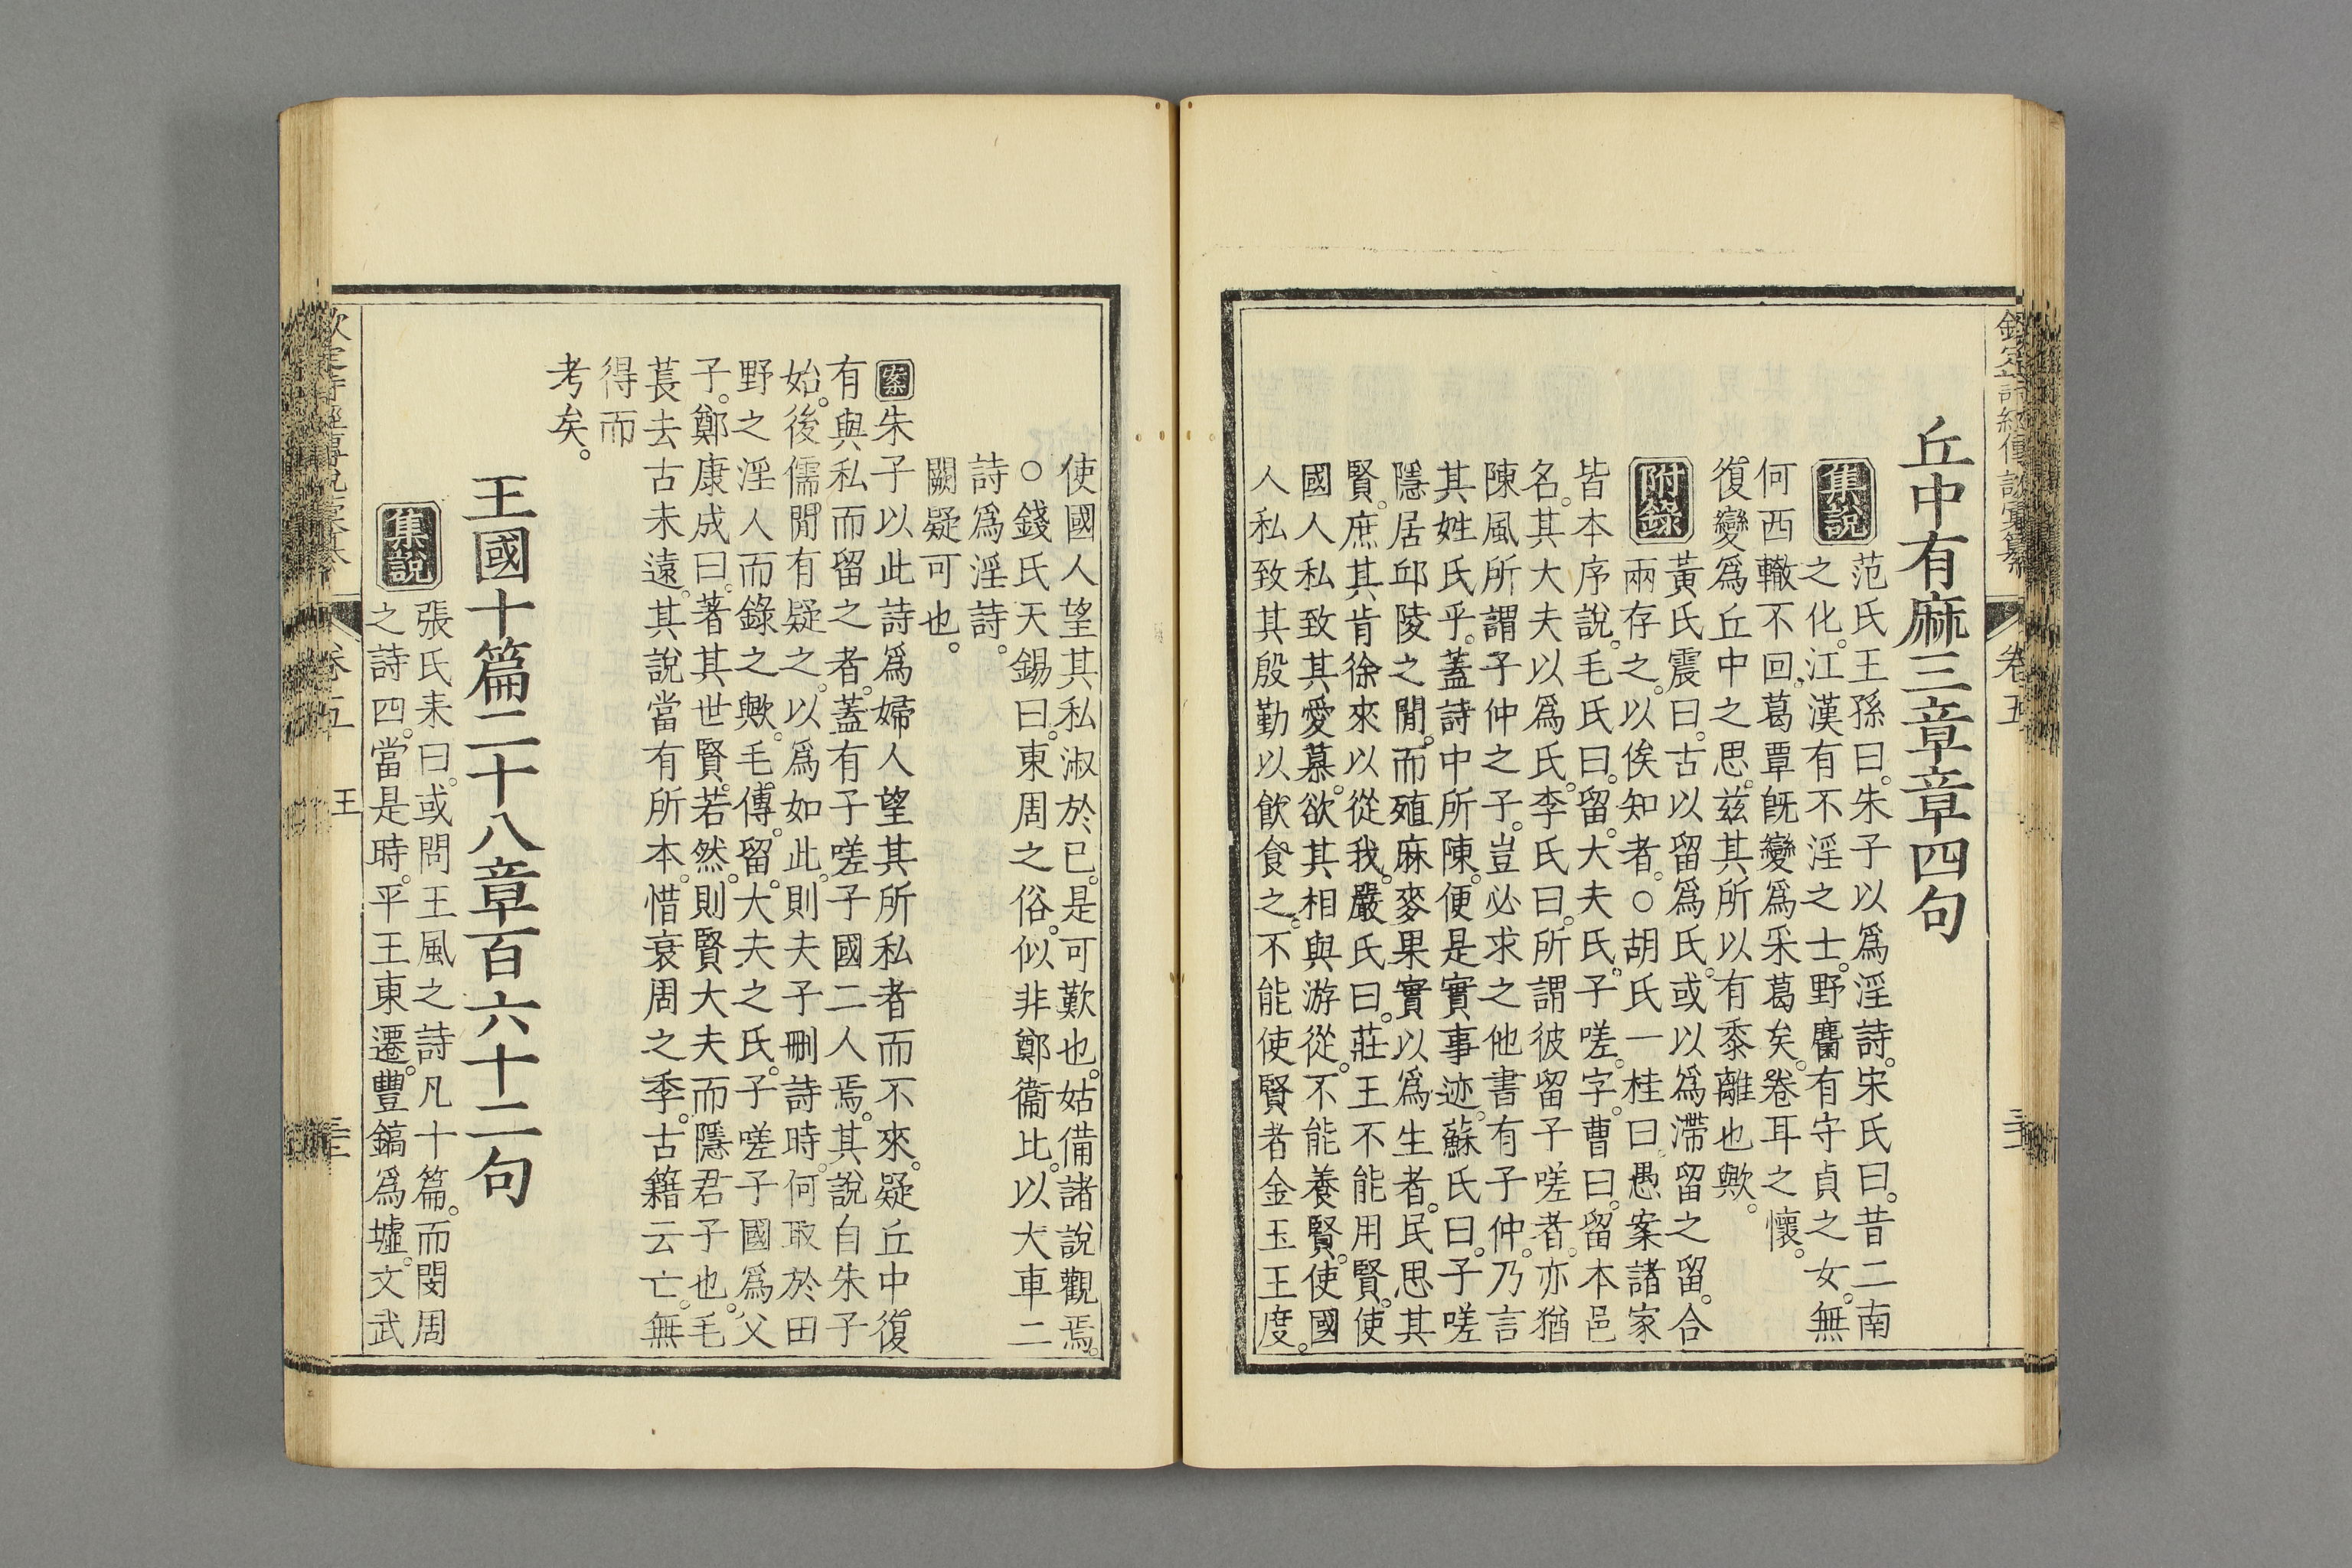 欽定詩經傳說彙纂 卷五
丘中有麻三章章四句
集說 范氏王孫曰。朱子以爲淫詩。宋氏曰。昔二南
之化。江漢有不淫之士。野麕有守貞之女。無
何西轍不回。葛覃旣變爲采葛矣。卷耳之懷。
復變爲丘中之思。茲其所以有黍離也歟。
附錄 黃氏震曰。古以留爲氏。或以爲滯留之留。合
兩存之。以俟知者。○胡氏一桂曰。愚案諸家
皆本序說。毛氏曰。留。大夫氏。子嗟。字。曹曰。留本邑
名。其大夫以爲氏。李氏曰。所謂彼留子嗟者。亦猶
陳風所謂子仲之子。豈必求之他書有子仲。乃言
其姓氏乎。蓋詩中所陳。便是實事迹。蘇氏曰。子嗟
隱居邱陵之閒。而殖麻麥果實以爲生者。民思其
賢。庶其肯徐來以從我。嚴氏曰。莊王不能用賢。使
國人私致其愛慕。欲其相與游從。不能養賢。使國
人私致其殷勤以飮食之。不能使賢者金玉王度。
使國人望其私淑於已。是可歎也。姑備諸說觀焉。
○錢氏天錫曰。東周之俗。似非鄭衞比。以大車二
詩爲淫詩。
闕疑可也。
案 朱子以此詩爲婦人望其所私者而不來。疑丘中復
有與私而留之者。蓋有子嗟子國二人焉。其說自朱子
始。後儒閒有疑之。以爲如此。則夫子刪詩時。何取於田
野之淫人而錄之歟。毛傳。留。大夫之氏。子嗟子國爲父
子。鄭康成曰。著其世賢。若然。則賢大夫而隱君子也。毛
萇去古未遠。其說當有所本。惜衰周之季。古籍云亡。無
得而
考矣。
王國十篇二十八章百六十二句
集說 張氏耒曰。或問王風之詩凡十篇。而閔周
之詩四。當是時。平王東遷。豐鎬爲墟。文武
卷五 王